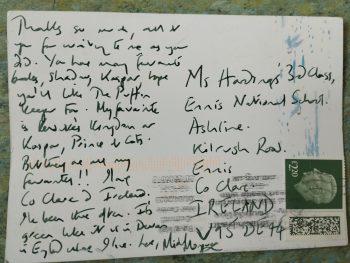 Thanks so much, all of
you for writing to me as your
3D. You have many favourite
books, Shadow, Kaspar, hope
you'll like The Puffin
Keeper too. My favourite
is Kensuke's Kingdom or
Kaspar, Prince of Cats.
But they are all my
favourites!! I love
Co Clare & Ireland.
I've been there often. It's
green like it is in Devon
in England where I live. Love, Michael Morpurgo
Ms Hardings' 3rd Class,
Ennis National School.
Ashline.
Kilrush Road.
Ennis
Co Clare.
IRELAND
V95
£2.20